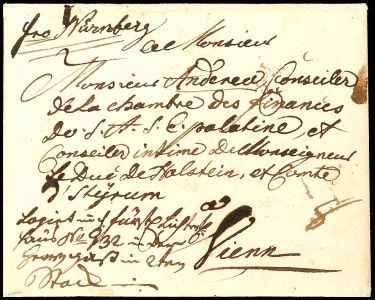 fro Nürnberg
A Monsieur
Monsieur Andereé, Conseiler
de la chambre des finances
de S. A. S. E. palatine, et
Conseiler intime de Monseigneur
le Duc de Holstein, et Comte
d'Styrum
a
Vienn
haus No 932 in
Stock